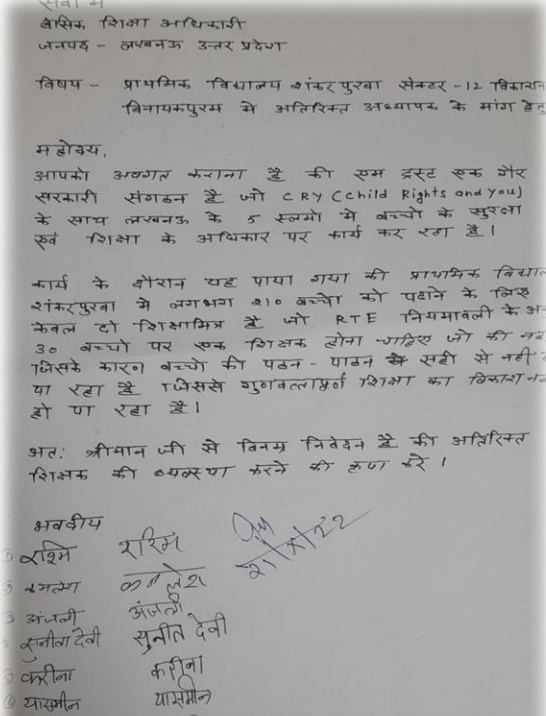 सेवा में
बेसिक शिक्षा अधिकारी
जनपद - लखनऊ उत्तर प्रदेश
विषय - प्राथमिक विद्यालय शंकरपुरवा सेक्टर -12 विकास
विनायकपुरम मे अतिरिक्त अध्यापक के मांग हेतु
महोदय,
आपको अवगत कराना है की एम ट्रस्ट एक गैर
सरकारी संगठन है जो CRY (Child Rights and you)
के साथ लखनऊ के 5 स्लमो मे बच्चो के सुरक्षा
एवं शिक्षा के अधिकार पर कार्य कर रहा है।
कार्य के दौरान यह पाया गया की प्राथमिक
शंकरपुरवा मे लगभग 210 बच्चो को पढाने के लिए
केवल दो शिक्षामित्र है जो RTE नियमावली के
30 बच्चो पर एक शिक्षक होना चाहिए जो की
जिसके कारण बच्चो की पठन - पाठन सही से नही
पा रहा है जिससे गुणवत्तापूर्ण शिक्षा का विकाश
हो पा रहा है।
अत: श्रीमान जी से विनम्र निवेदन है की अतिरिक्त
शिक्षक की व्यवस्था करने की कृपा करे।
भवदीय
रश्मि रश्मि
कमलेश कमलेश
अंजली अंजली
सुनीता देवी सुनीत देवी
करीना करीना
यासमीन यासमीन